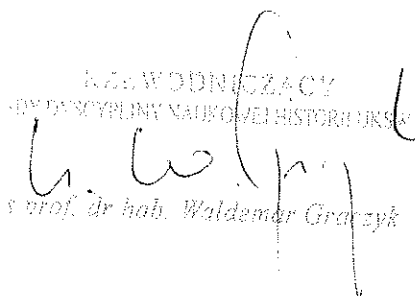 RZEWODNICZĄCY
ADY DYSCYPLINY NAUKOWEJ HISTORII UKSW
s prof. dr hab. Waldemar Graczyk